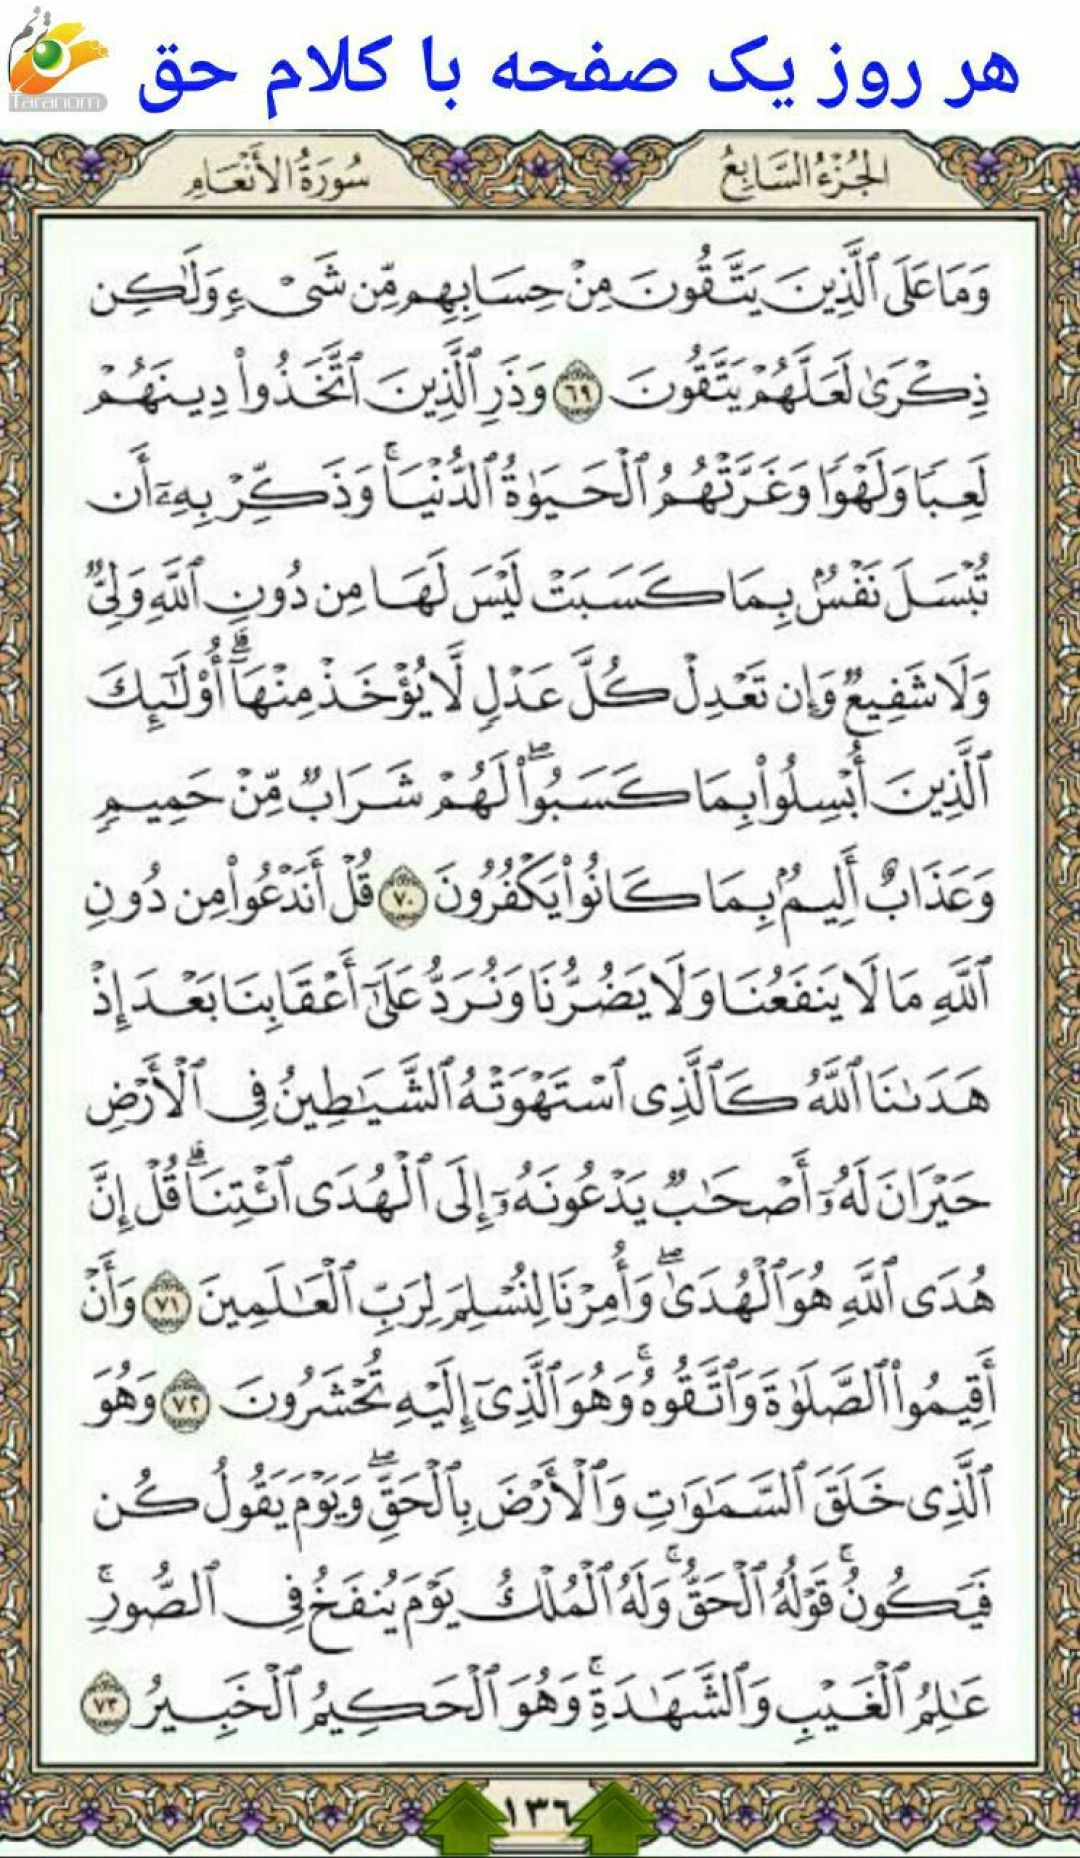 هر روز یک صفحه با کلام حق
taranom
ترنم
الجُزْءُ السَّابِعُ
سُورَةُ الأَنْعَامِ
وَمَا عَلَى ٱلَّذِينَ يَتَّقُونَ مِنْ حِسَابِهِم مِّن شَىْءٍ وَلَٰكِن
ذِكْرَىٰ لَعَلَّهُمْ يَتَّقُونَ ٦٩ وَذَرِ ٱلَّذِينَ ٱتَّخَذُوا۟ دِينَهُمْ
لَعِبًا وَلَهْوًا وَغَرَّتْهُمُ ٱلْحَيَوٰةُ ٱلدُّنْيَا ۚ وَذَكِّرْ بِهِۦٓ أَن
تُبْسَلَ نَفْسٌۢ بِمَا كَسَبَتْ لَيْسَ لَهَا مِن دُونِ ٱللَّهِ وَلِىٌّ
وَلَا شَفِيعٌ وَإِن تَعْدِلْ كُلَّ عَدْلٍ لَّا يُؤْخَذْ مِنْهَآ ۗ أُو۟لَٰٓئِكَ
ٱلَّذِينَ أُبْسِلُوا۟ بِمَا كَسَبُوا۟ ۖ لَهُمْ شَرَابٌ مِّنْ حَمِيمٍ
وَعَذَابٌ أَلِيمٌۢ بِمَا كَانُوا۟ يَكْفُرُونَ ٧٠ قُلْ أَنَدْعُوا۟ مِن دُونِ
ٱللَّهِ مَا لَا يَنفَعُنَا وَلَا يَضُرُّنَا وَنُرَدُّ عَلَىٰٓ أَعْقَابِنَا بَعْدَ إِذْ
هَدَىٰنَا ٱللَّهُ كَٱلَّذِى ٱسْتَهْوَتْهُ ٱلشَّيَٰطِينُ فِى ٱلْأَرْضِ
حَيْرَانَ لَهُۥٓ أَصْحَٰبٌ يَدْعُونَهُۥٓ إِلَى ٱلْهُدَى ٱئْتِنَا ۗ قُلْ إِنَّ
هُدَى ٱللَّهِ هُوَ ٱلْهُدَىٰ ۖ وَأُمِرْنَا لِنُسْلِمَ لِرَبِّ ٱلْعَٰلَمِينَ ٧١ وَأَنْ
أَقِيمُوا۟ ٱلصَّلَوٰةَ وَٱتَّقُوهُ ۚ وَهُوَ ٱلَّذِىٓ إِلَيْهِ تُحْشَرُونَ ٧٢ وَهُوَ
ٱلَّذِى خَلَقَ ٱلسَّمَٰوَٰتِ وَٱلْأَرْضَ بِٱلْحَقِّ ۖ وَيَوْمَ يَقُولُ كُن
فَيَكُونُ ۚ قَوْلُهُ ٱلْحَقُّ ۚ وَلَهُ ٱلْمُلْكُ يَوْمَ يُنفَخُ فِى ٱلصُّورِ ۚ
عَٰلِمُ ٱلْغَيْبِ وَٱلشَّهَٰدَةِ ۚ وَهُوَ ٱلْحَكِيمُ ٱلْخَبِيرُ ٧٣
١٣٦